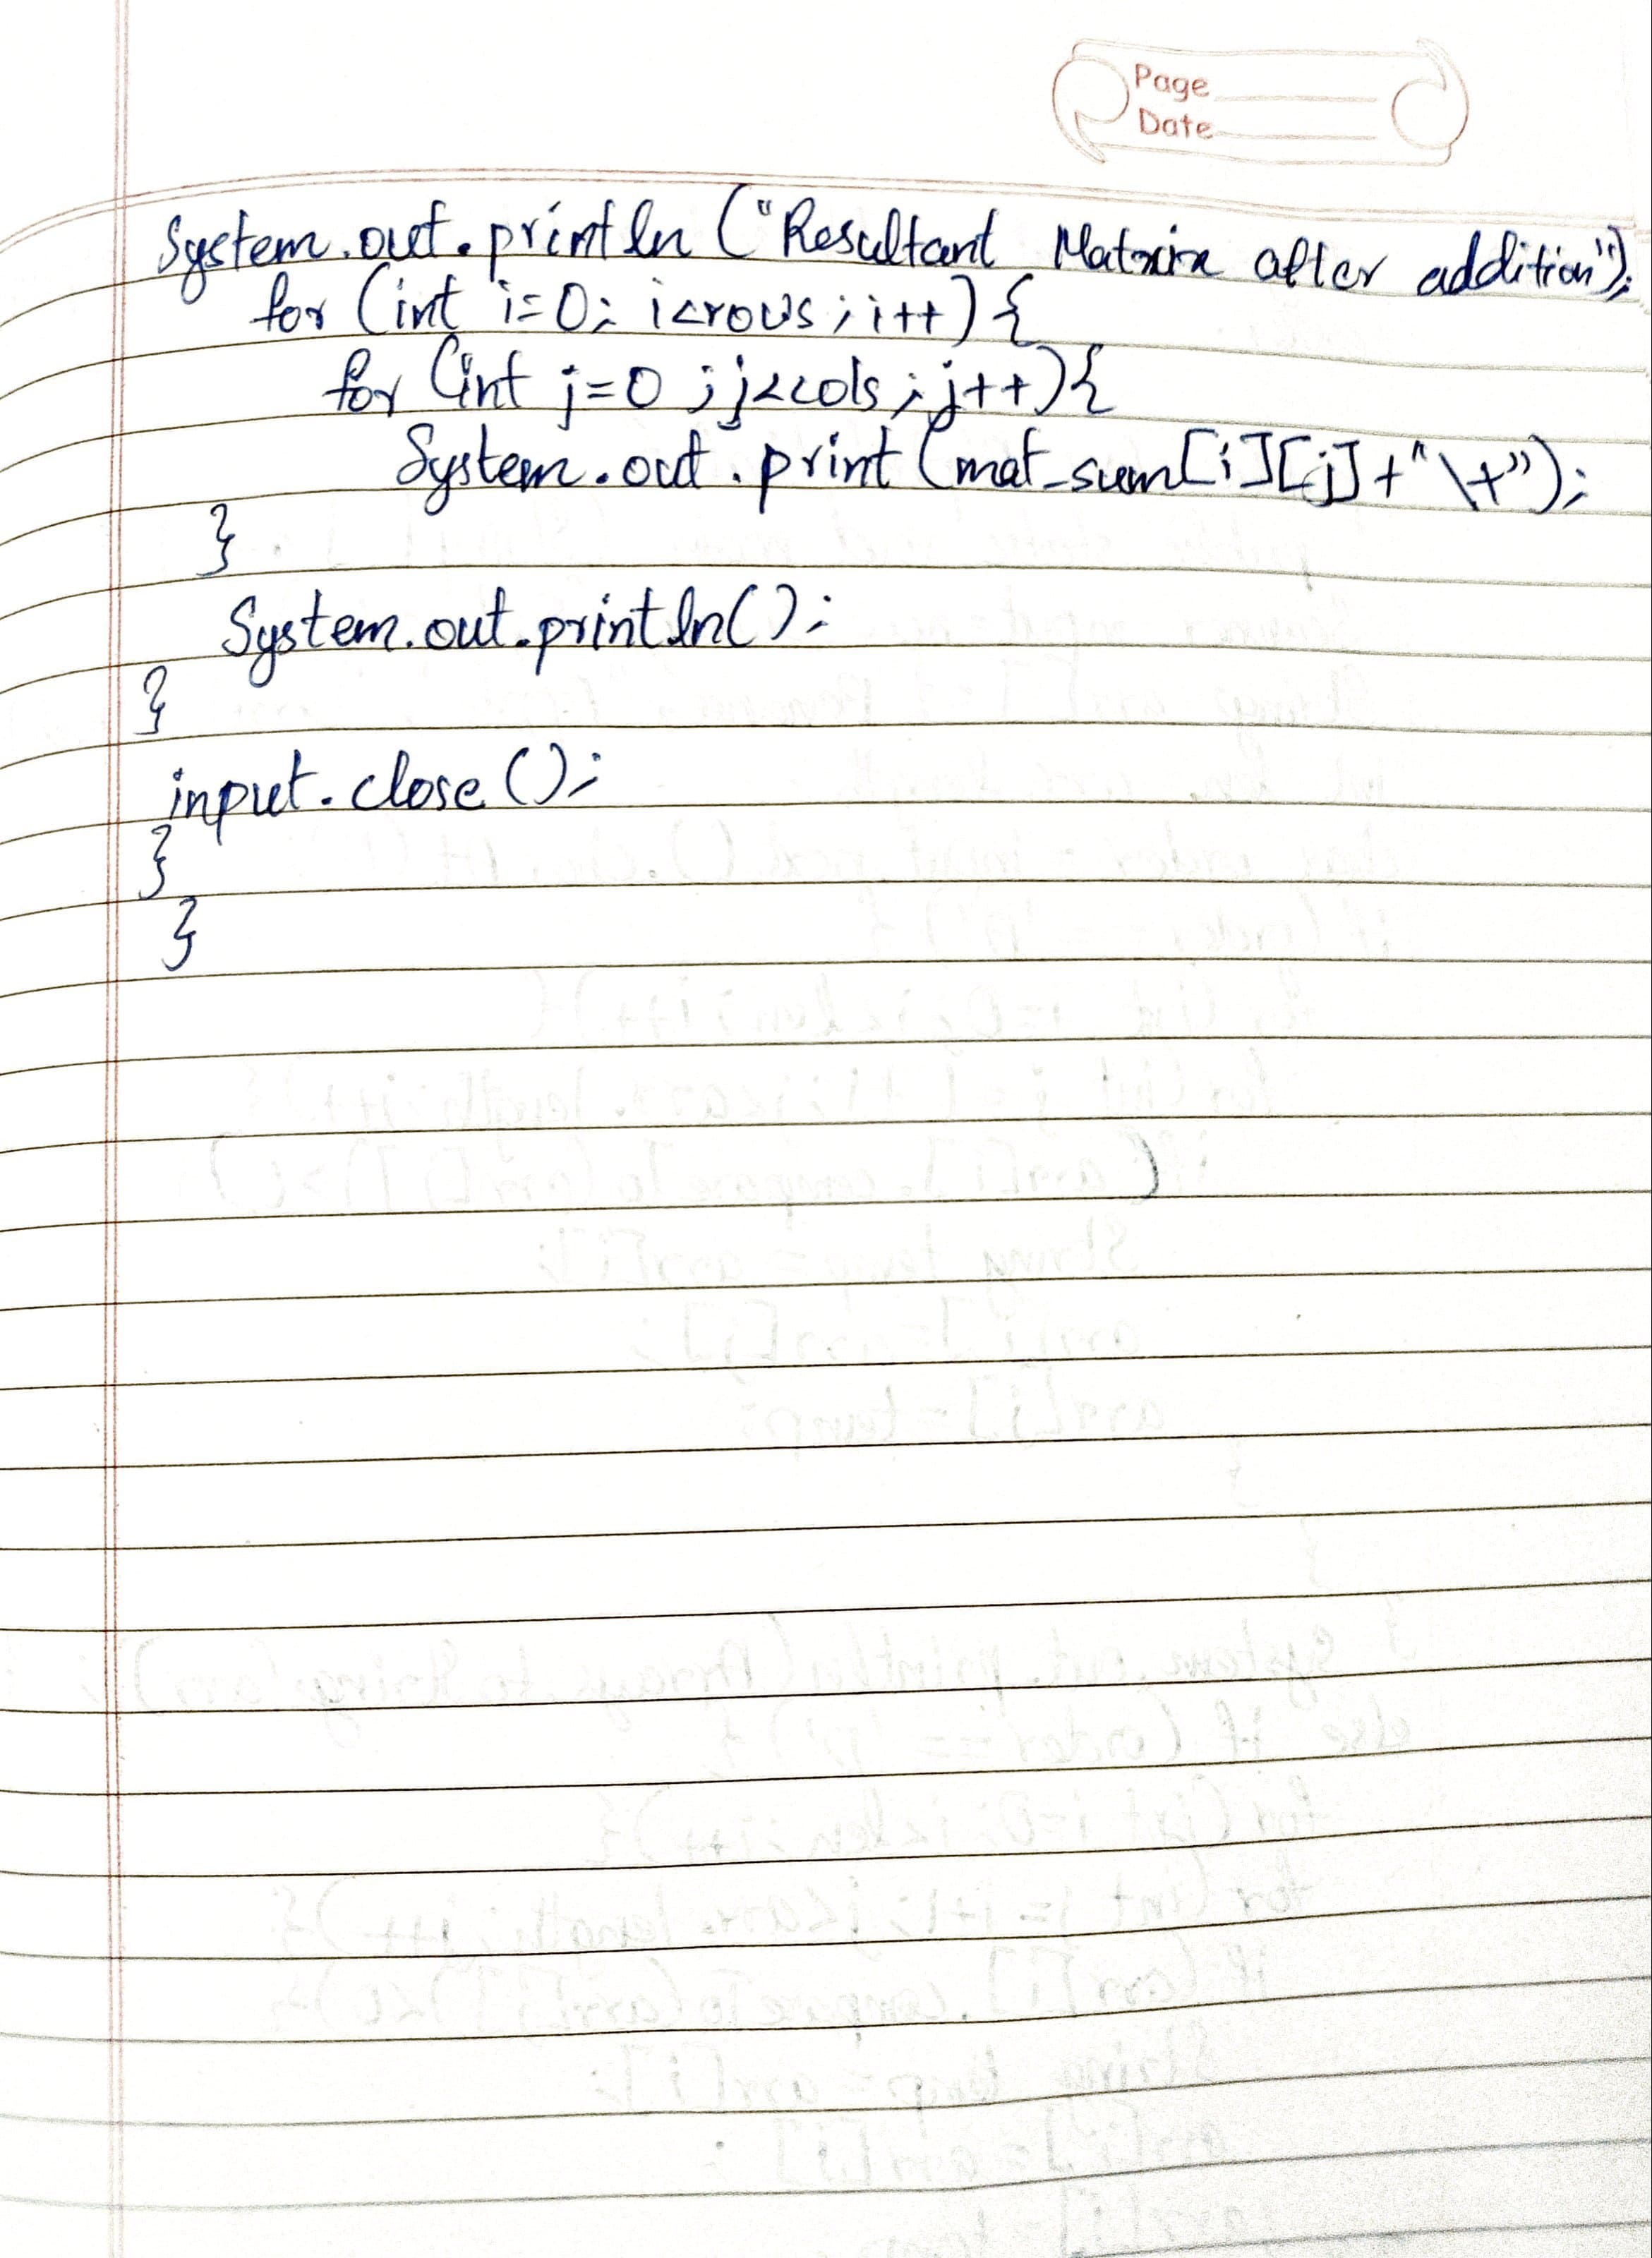 Page
Date
System.out.println ("Resultant Matrix after addition");
for (int i=0; i<rows; i++) {
for (int j=0; j<cols; j++){
System.out.print (mat_sum[i][j]+"\t");
}
System.out.println();
}
input.close();
}
}